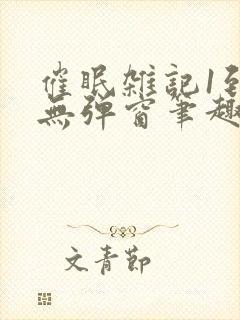 催眠雑記1到
無弹窗筆趣
文青節